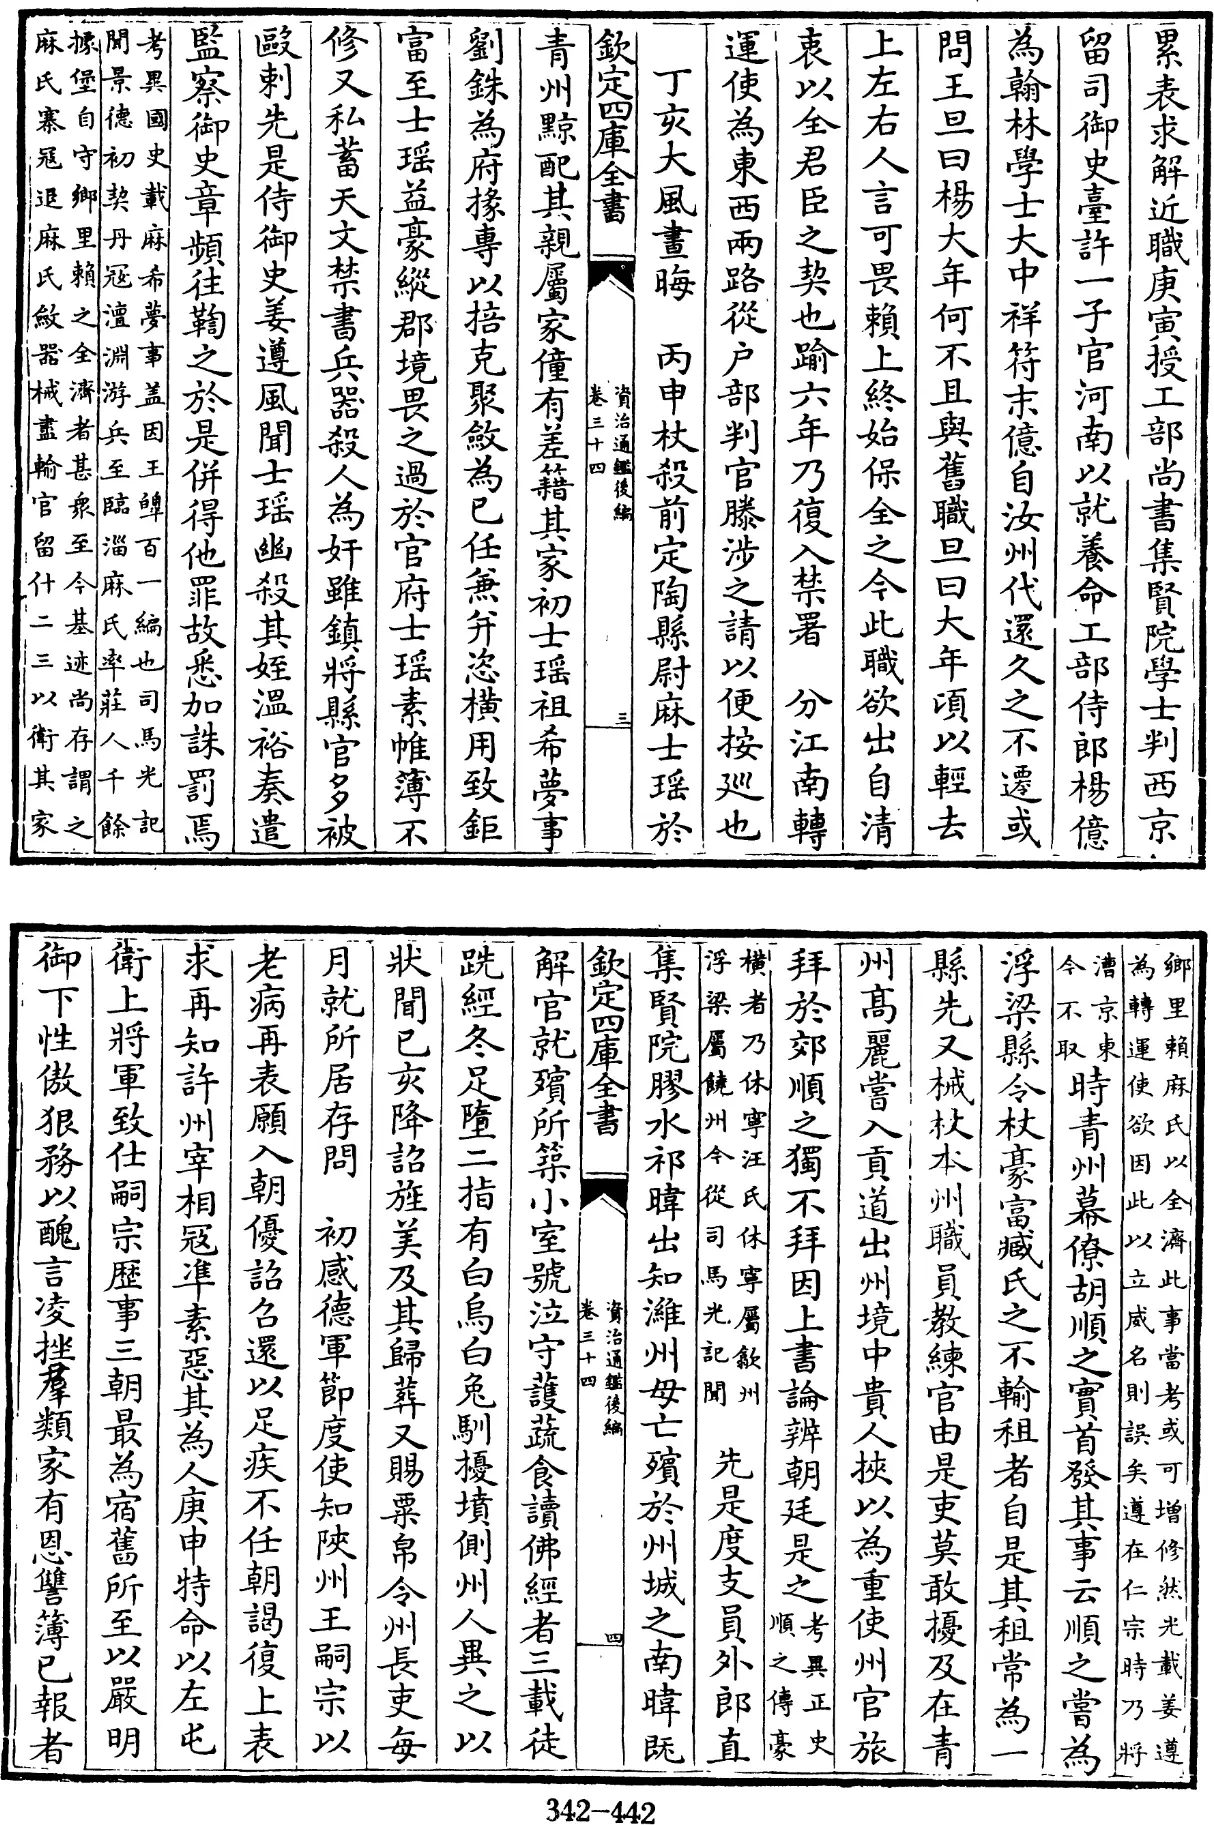 累表求解近職庚寅授工部尚書集賢院學士判西京
留司御史臺許一子官河南以就養命工部侍郎楊億
為翰林學士大中祥符末億自汝州代還久之不遷或
問王旦曰楊大年何不且與舊職旦曰大年頃以輕去
上左右人言可畏賴上終始保全之今此職欲出自清
衷以全君臣之契也踰六年乃復入禁署　分江南轉
運使為東西兩路從户部判官滕涉之請以便按廵也
丁亥大風晝晦　丙申杖殺前定陶縣尉麻士瑶於
欽定四庫全書
資治通鑑後編
卷三十四
三
青州黥配其親屬家僮有差籍其家初士瑶祖希夢事
劉銖為府掾專以掊克聚斂為已任兼并恣橫用致鉅
富至士瑶益豪縱郡境畏之過於官府士瑶素帷薄不
修又私蓄天文禁書兵器殺人為奸雖鎮將縣官多被
毆剌先是侍御史姜遵風聞士瑶幽殺其姪溫裕奏遣
監察御史章頻往鞫之於是併得他罪故悉加誅罰焉
考異國史載麻希夢事盖因王皥百一編也司馬光記
聞景德初契丹冦澶淵游兵至臨淄麻氏率莊人千餘
據堡自守鄉里賴之全濟者甚衆至今基迹尚存謂之
麻氏寨冦退麻氏斂器械盡輸官留什二三以衛其家
鄉里賴麻氏以全濟此事當考或可增修然光載姜遵
為轉運使欲因此以立威名則誤矣遵在仁宗時乃將
漕京東
今不取
時青州幕僚胡順之實首發其事云順之嘗為
浮梁縣令杖豪富臧氏之不輸租者自是其租常為一
縣先又械杖本州職員教練官由是吏莫敢擾及在青
州髙麗嘗入貢道出州境中貴人挾以為重使州官旅
拜於郊順之獨不拜因上書論辨朝廷是之
考異正史
順之傳豪
橫者乃休寧汪氏休寧屬歙州
浮梁屬饒州今從司馬光記聞
先是度支員外郎直
集賢院膠水祁暐出知濰州母亡殯於州城之南暐既
欽定四庫全書
資治通鑑後編
卷三十四
四
解官就殯所築小室號泣守護蔬食讀佛經者三載徒
跣經冬足墮二指有白烏白兔馴擾墳側州人異之以
狀聞已亥降詔旌美及其歸葬又賜粟帛令州長吏每
月就所居存問　初感德軍節度使知陜州王嗣宗以
老病再表願入朝優詔召還以足疾不任朝謁復上表
求再知許州宰相冦凖素惡其為人庚申特命以左屯
衛上將軍致仕嗣宗歴事三朝最為宿舊所至以嚴明
御下性傲狠務以醜言凌挫羣類家有恩讐簿已報者
342-442